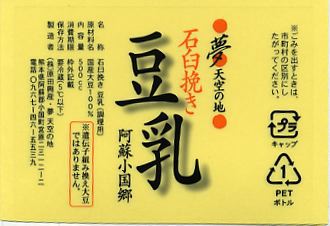 ※ごみを出すときは、
市町村の区別にし
たがってください。
プラ
キャップ
1
PET
ボトル
夢 天空の地
石臼挽き
豆乳
阿蘇小国郷
名称 石臼挽き 豆乳(調理用)
原材料名 国産大豆100%
内容量 500cc
消費期限 枠外記載
保存方法 要冷蔵(5℃以下)
製造者 (株)原田興産・夢 天空の地
熊本県阿蘇郡小国町宮原二三一二ー二
電話〇九六七ー四六ー五五三九
※遺伝子組み換え大豆
ではありません。